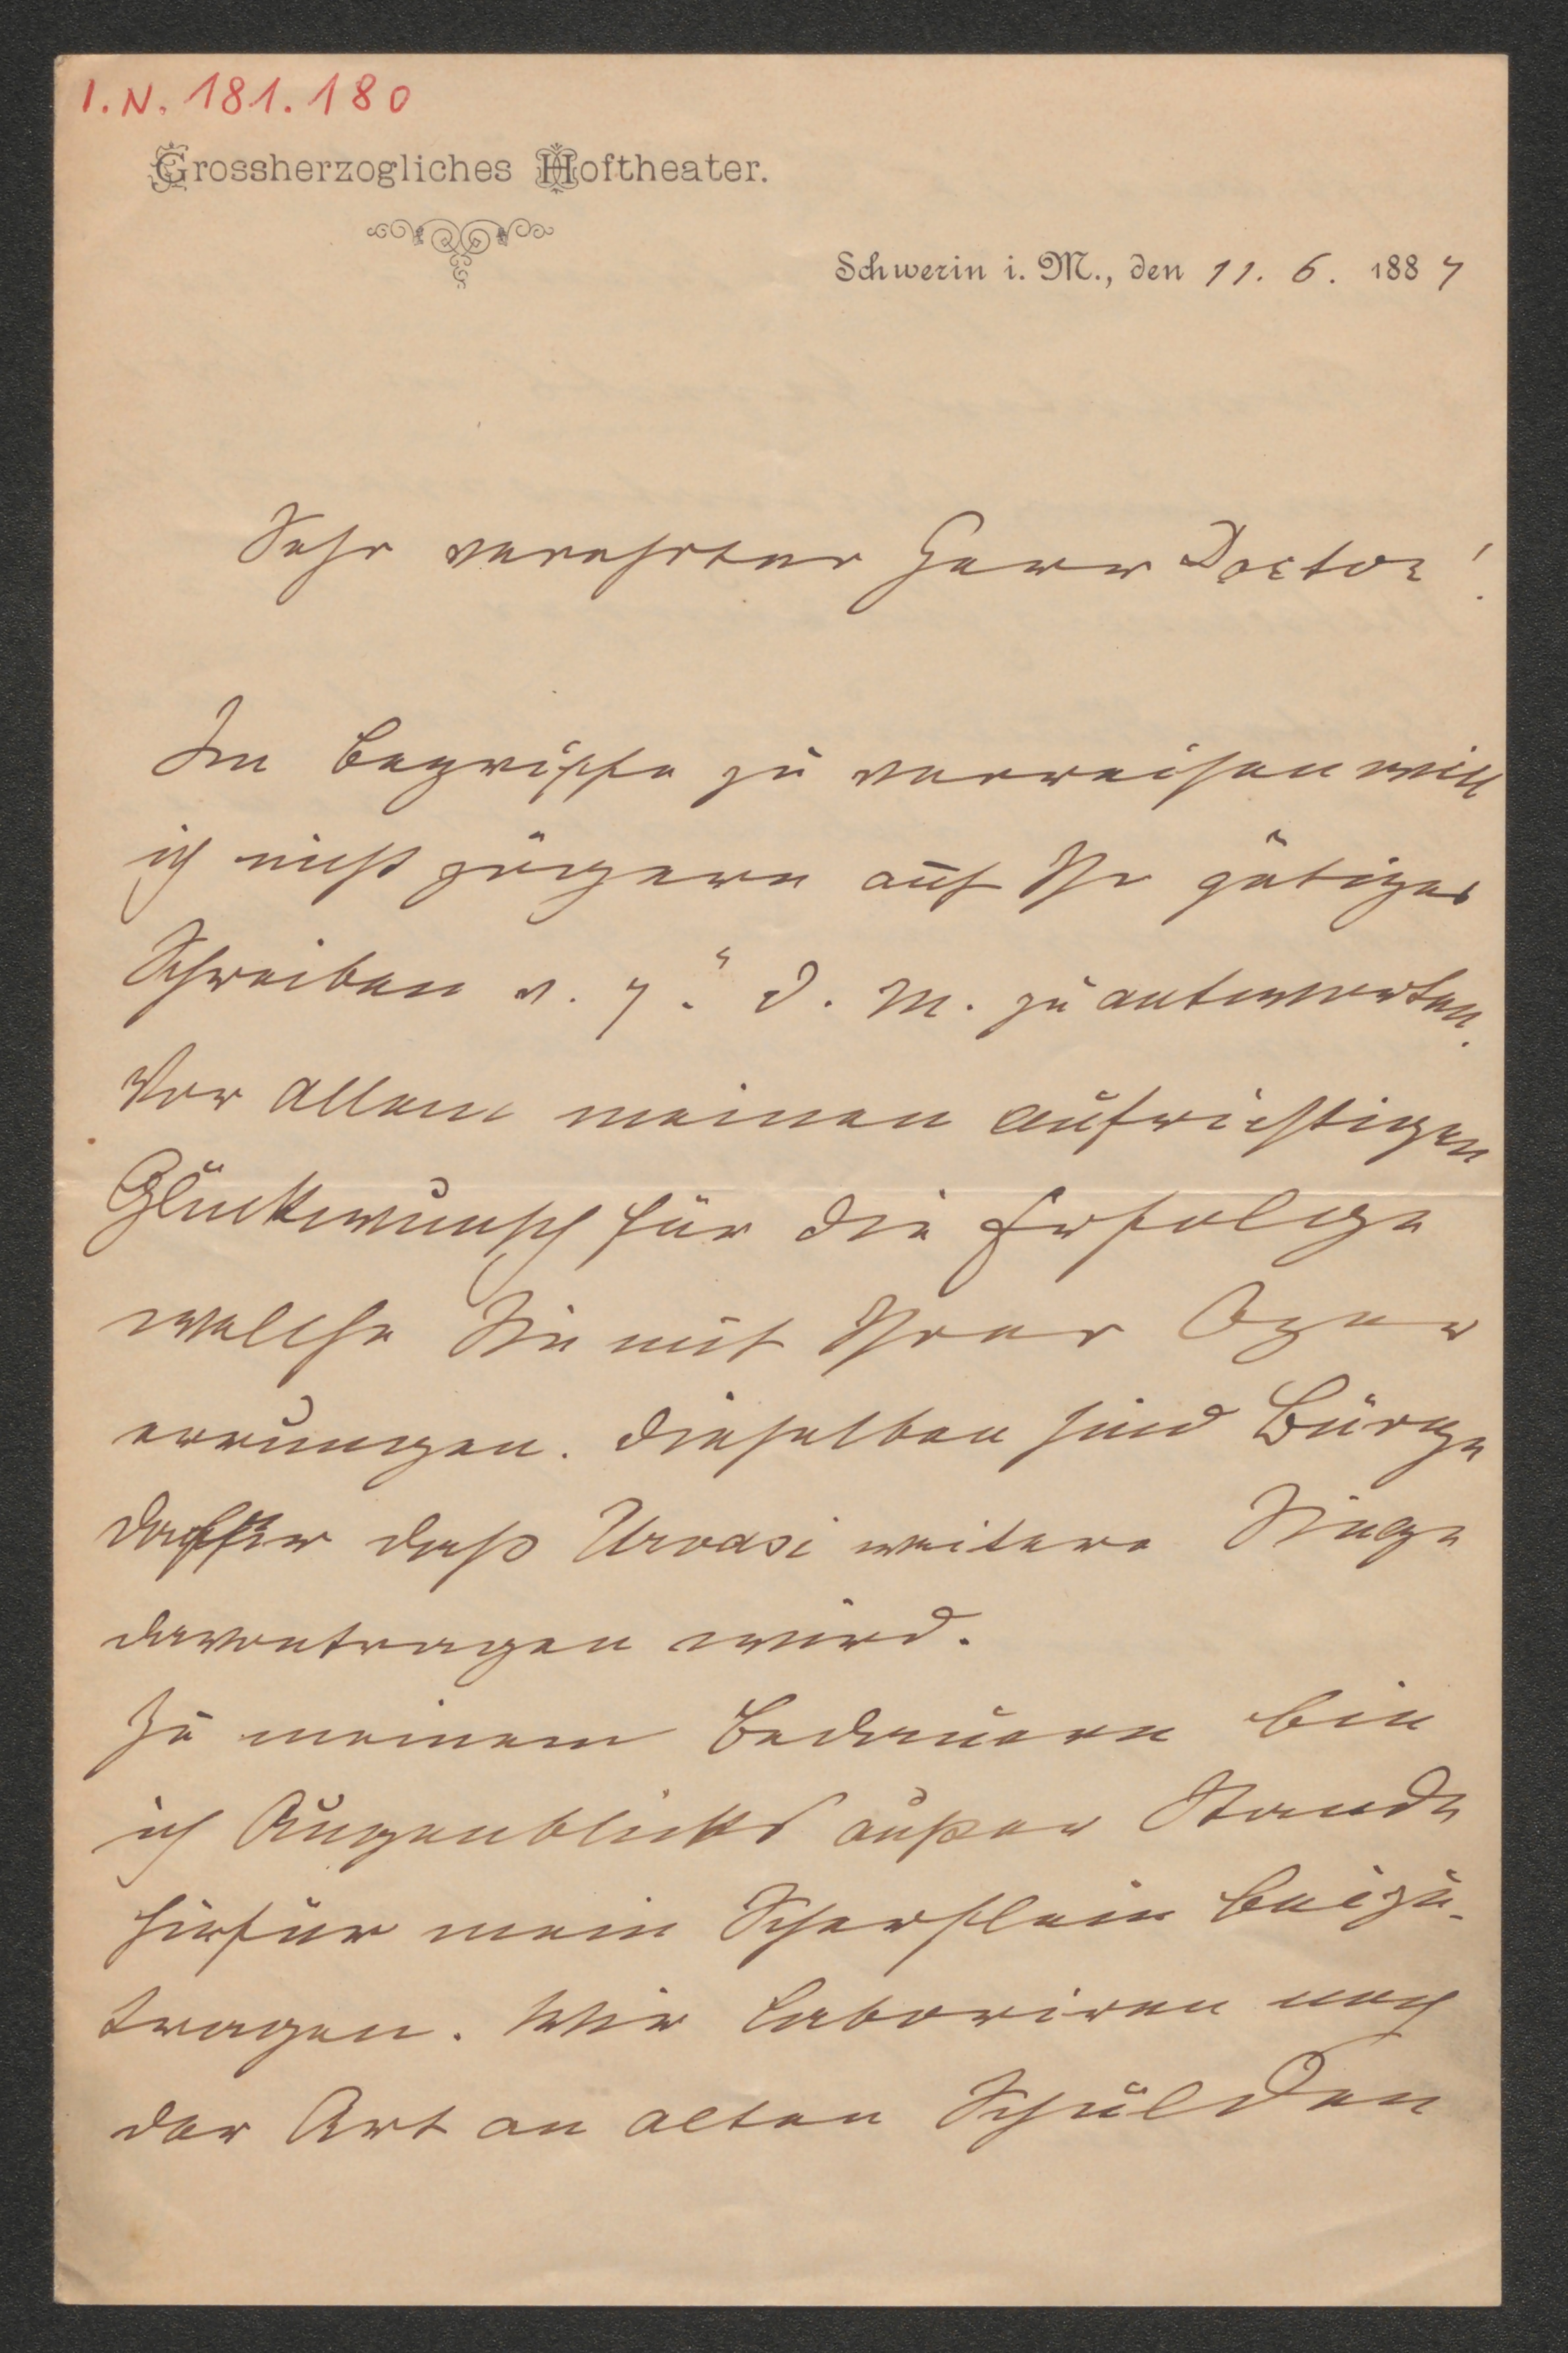 I.N. 181.180
Grossherzogliches Hoftheater.
Schwerin i. M., den 11. 6. 1887
Sehr verehrter Herr Doctor!
Im Begriffe zu verreisen will
ich nicht zögern auf Ihr gütiges
Schreiben v. 7. d. M. zu antworten.
Vor allem meinen aufrichtigen
Glückwunsch für die Erfolge
welche Sie mit Ihrer Oper
errungen. Dieselben sind Bürge
dafür daß Urvasi weitere Siege
davontragen wird.
Zu meinem Bedauern bin
ich Augenblicks außer Stande
hirfür mein Scherflein beizu-
tragen. Wir laboriren noch
der Art an alten Schulden